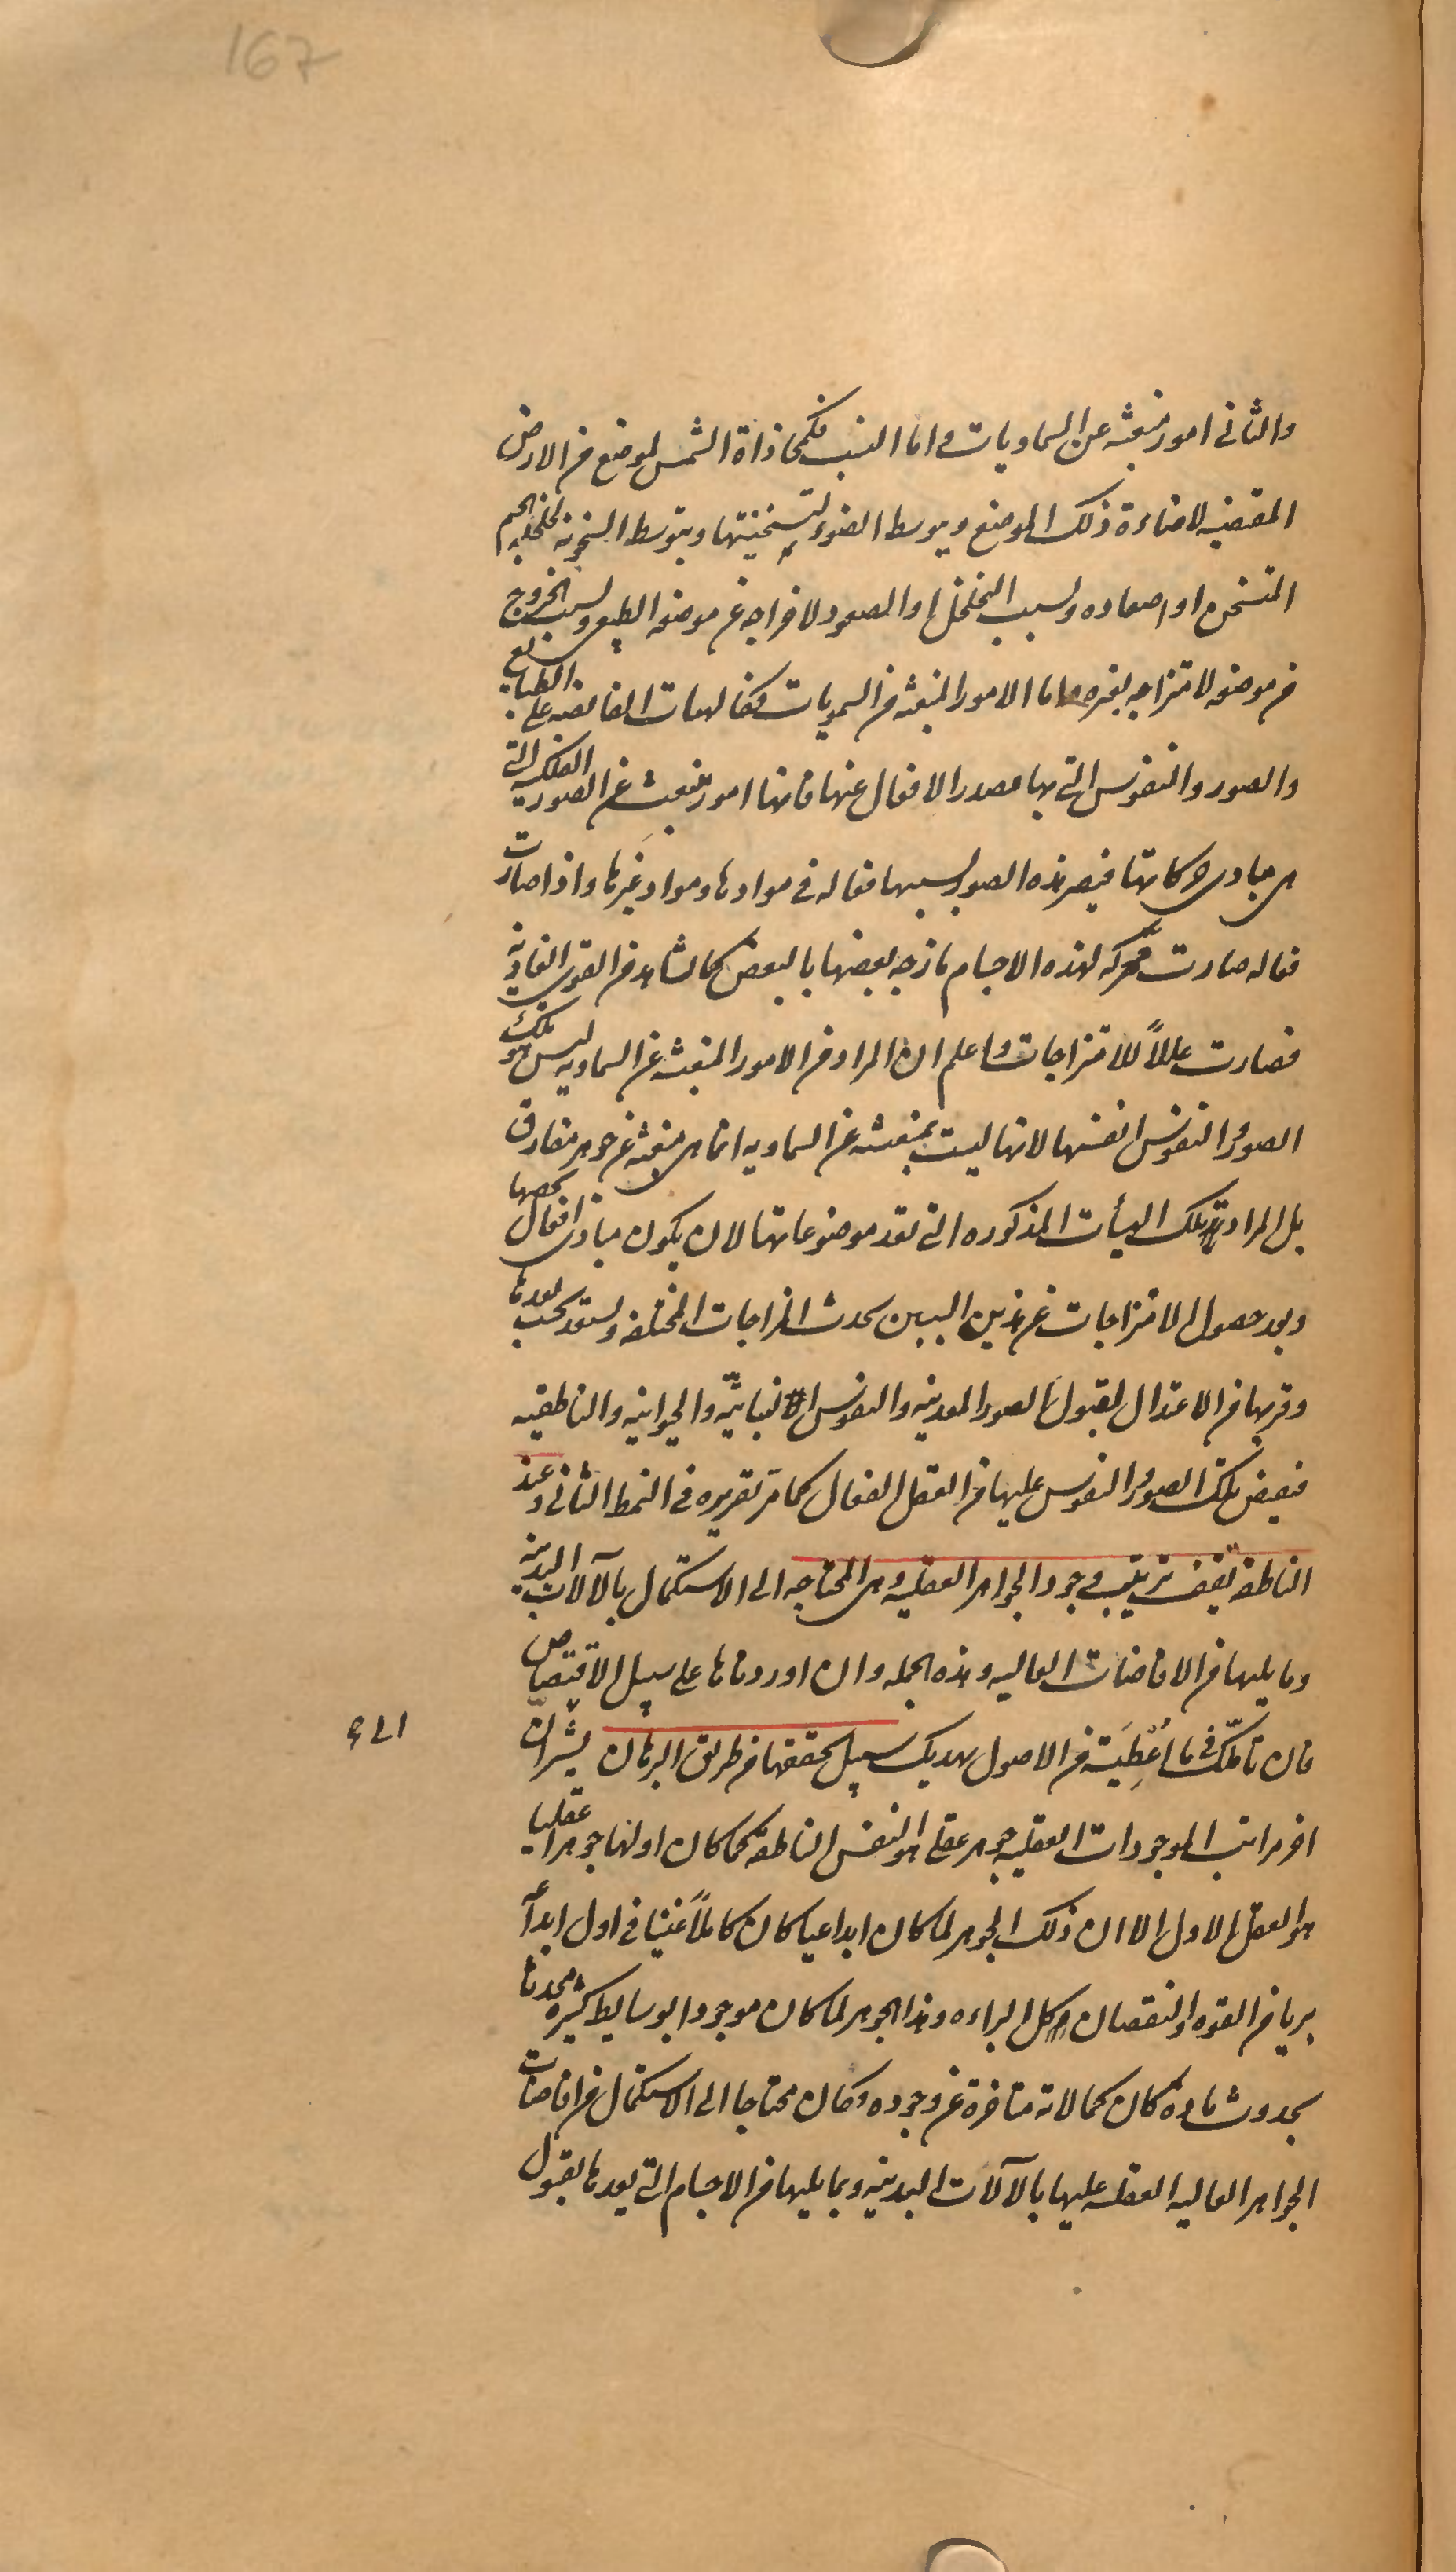 167
والثانى امور منبعثه عن السماويات و اما النسب فكمحاذاة الشمس لموضع من الارض
المقتضيه لاضاءة ذلك الموضع وبتوسط الضوء لتسخينها وبتوسط السخونه لتخلخل الجسم
المتسخن او اصعاده وبسبب التخلخل او الصعود لاخراجه عن موضعه الطبيعى وبسبب الخروج
من موضعه لامتزاجه بغيره واما الامور المنبعثه من السمويات فكالهيات الفائضه على الطبايع
والصور والنفوس التى بها مصدر الافعال عنها فانها امور تنبعث عن الصور الفلكيه التى
هى مبادى حركاتها فيصير هذه الصور بسببها فعاله فى موادها ومواد غيرها واذا صارت
فعاله صارت محركه لهذه الاجسام مازجه بعضها بالبعض كما نشاهد من القوى الغاذيه
فصارت عللاً للامتزاجات واعلم ان المراد من الامور المنبعثه عن السماويه ليس هو تلك
الصور والنفوس انفسها لانها ليست بمنبعثه عن السماويه انما هى منبعثه عن جوهر مفارق
بل المراد تلك الهيأت المذكوره التى تعد موضوعاتها لان يكون مبادى افعال يخصها
وبعد حصول الامتزاجات عن هذين السببين يحدث المزاجات المختلفه ويستعد بحسب بعدها
وقربها من الاعتدال لقبول الصور المعدنيه والنفوس النباتيّه والحيوانيه والناطقيه
فيفيض تلك الصور والنفوس عليها من العقل الفعال كما مرّ تقريره فى النمط الثانى وعند
الناطقه يقف ترتيب وجود الجواهر العقليه وهى المحتاجه الى الاستكمال بالآلات البدنيه
وما يليها من الافاضات العاليه وهذه الجمله وان اوردناها على سبيل الاقتصاص
فان تأملك فى ما أُعْطِيَته من الاصول يهديك سبيل تحققها من طريق البرهان يشير ان
اخر مراتب الموجودات العقليه جوهر عقلى هو النفس الناطقه كما كان اولها جوهرا عقليا
هو العقل الاول الا ان ذلك الجوهر لما كان ابداعيا كان كاملاً غنيا فى اول ابداعه
بريا من القوه والنقصان كل البراءه وهذا الجوهر لما كان موجودا بوسايط كثيره محدثا
بحدوث ماده كان كمالاته متاخرة عن وجوده وكان محتاجا الى الاستكمال من افاضات
الجواهر العاليه العقليه عليها بالآلات البدنيه وبما يليها من الاجسام التى يعدها بقبول